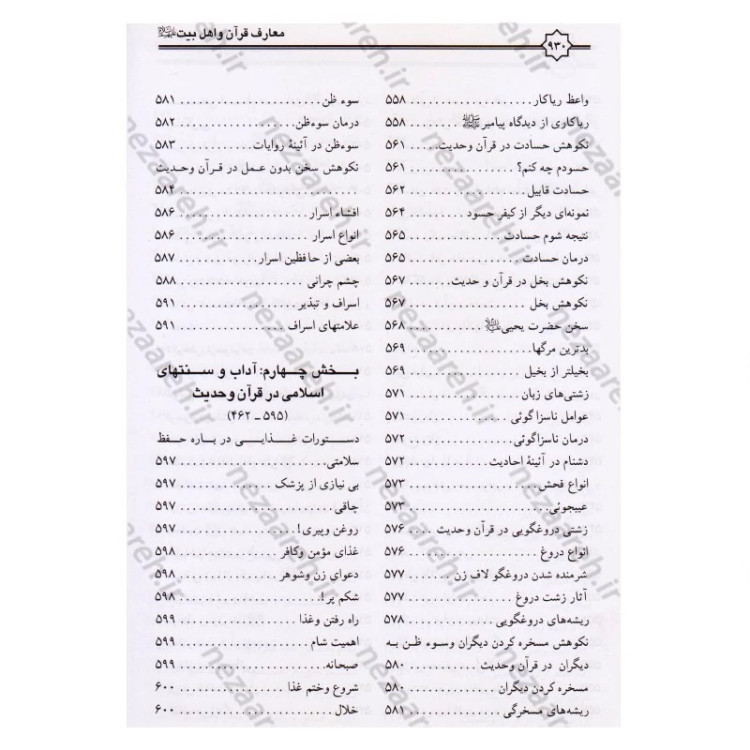 معارف قرآن و اهل بیت ﷺ
۹۳۰
واعظ ریاکار .................... ۵۵۸
ریاکاری از دیدگاه پیامبر ﷺ ........ ۵۵۸
نکوهش حسادت در قرآن وحدیث..... ۵۶۱
حسودم چه کنم؟ ................. ۵۶۱
حسادت قابیل .................... ۵۶۲
نمونه‌ای دیگر از کیفر حسود ......... ۵۶۴
نتیجه شوم حسادت ................ ۵۶۵
درمان حسادت .................... ۵۶۵
نکوهش بخل در قرآن و حدیث....... ۵۶۷
نکوهش بخل .................... ۵۶۷
سخن حضرت یحیی ............. ۵۶۸
بدترین مرگها .................... ۵۶۹
بخیلتر از بخیل .................... ۵۶۹
زشتی‌های زبان .................... ۵۷۱
عوامل ناسزاگوئی .................. ۵۷۱
درمان ناسزاگوئی .................. ۵۷۲
دشنام در آئینۀ احادیث ............. ۵۷۲
انواع فحش ....................... ۵۷۳
عیبجوئی......................... ۵۷۳
زشتی دروغگویی در قرآن وحدیث .... ۵۷۶
انواع دروغ ....................... ۵۷۶
شرمنده شدن دروغگو لاف زن ....... ۵۷۷
آثار زشت دروغ ................... ۵۷۷
ریشه‌های دروغگویی ............... ۵۷۸
نکوهش مسخره کردن دیگران وسوء ظن به
دیگران در قرآن وحدیث ............ ۵۸۰
مسخره کردن دیگران .............. ۵۸۰
ریشه‌های مسخرگی ................ ۵۸۱
سوء ظن ........................ ۵۸۱
درمان سوءظن ................... ۵۸۲
سوءظن در آئینۀ روایات ............ ۵۸۳
نکوهش سخن بدون عمل در قرآن وحدیث
.............................. ۵۸۴
افشاء اسرار ..................... ۵۸۶
انواع اسرار ...................... ۵۸۶
بعضی از حافظین اسرار ............ ۵۸۷
چشم چرانی ..................... ۵۸۸
اسراف و تبذیر .................... ۵۹۱
علامتهای اسراف .................. ۵۹۱
بخش چهارم: آداب و سنتهای
اسلامی در قرآن وحدیث
(۵۹۵ ـ ۴۶۲)
دستورات غذایی در باره حفظ
سلامتی ......................... ۵۹۷
بی نیازی از پزشک ................ ۵۹۷
چاقی ........................... ۵۹۷
روغن وپیری! ..................... ۵۹۷
غذای مؤمن وکافر ................. ۵۹۸
دعوای زن وشوهر ................. ۵۹۸
شکم پر! ......................... ۵۹۸
راه رفتن وغذا .................... ۵۹۹
اهمیت شام ...................... ۵۹۹
صبحانه.......................... ۵۹۹
شروع وختم غذا ................... ۶۰۰
خلال ........................... ۶۰۰
nezaareh.ir